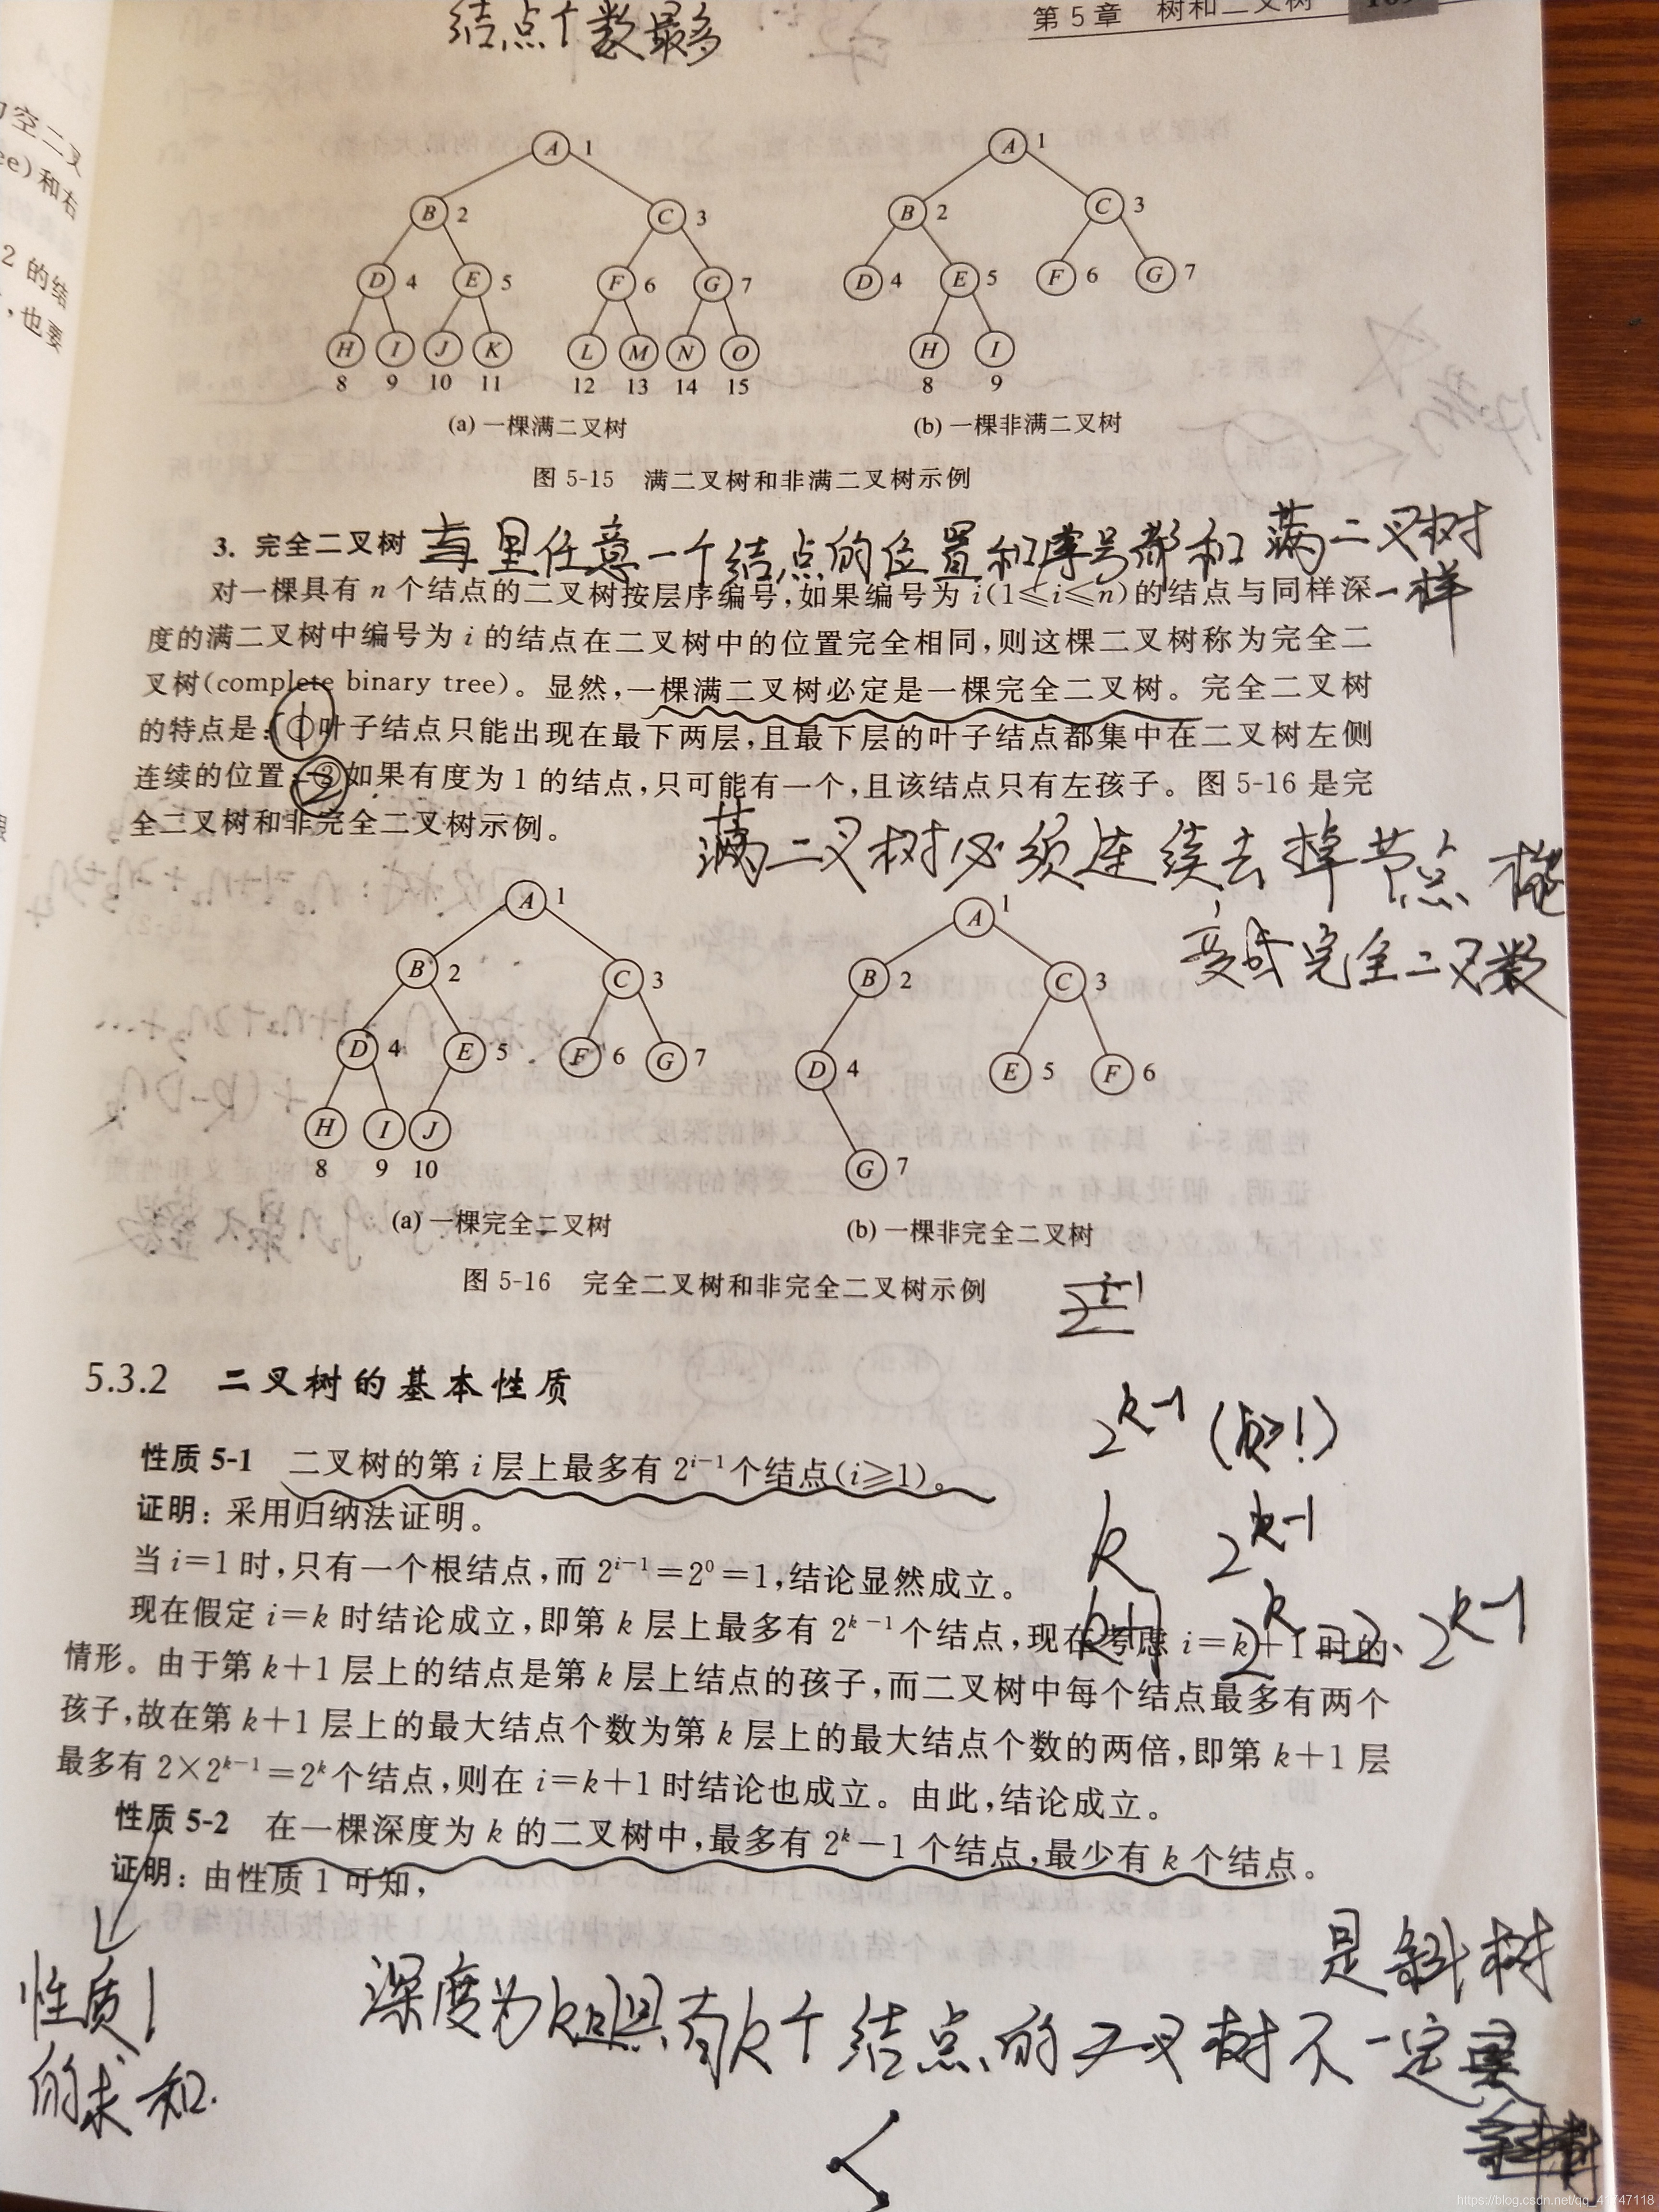 结点个数最多
第5章 树和二叉树
的空二叉
ee)和右
2 的结
,也要
A 1
B 2 C 3
D 4 E 5 F 6 G 7
H I J K L M N O
8 9 10 11 12 13 14 15
(a) 一棵满二叉树
A 1
B 2 C 3
D 4 E 5 F 6 G 7
H I
8 9
(b) 一棵非满二叉树
图 5-15 满二叉树和非满二叉树示例
3. 完全二叉树
里任意一个结点的位置和序号都和满二叉树
一样
对一棵具有 n 个结点的二叉树按层序编号,如果编号为 i(1≤i≤n)的结点与同样深
度的满二叉树中编号为 i 的结点在二叉树中的位置完全相同,则这棵二叉树称为完全二
叉树(complete binary tree)。显然,一棵满二叉树必定是一棵完全二叉树。完全二叉树
的特点是:①叶子结点只能出现在最下两层,且最下层的叶子结点都集中在二叉树左侧
连续的位置;②如果有度为 1 的结点,只可能有一个,且该结点只有左孩子。图 5-16 是完
全二叉树和非完全二叉树示例。
满二叉树必须连续去掉节点
变成完全二叉数
A 1
B 2 C 3
D 4 E 5 F 6 G 7
H I J
8 9 10
(a) 一棵完全二叉树
A 1
B 2 C 3
D 4 E 5 F 6
G 7
(b) 一棵非完全二叉树
图 5-16 完全二叉树和非完全二叉树示例
2^{i-1}
5.3.2 二叉树的基本性质
2^{k-1}
性质 5-1 二叉树的第 i 层上最多有 2^{i-1} 个结点(i≥1)。
证明: 采用归纳法证明。
k 2^{k-1}
当 i=1 时,只有一个根结点,而 2^{i-1}=2^0=1,结论显然成立。
k+1 2^k = 2·2^{k-1}
现在假定 i=k 时结论成立,即第 k 层上最多有 2^{k-1} 个结点,现在考虑 i=k+1 时的
情形。由于第 k+1 层上的结点是第 k 层上结点的孩子,而二叉树中每个结点最多有两个
孩子,故在第 k+1 层上的最大结点个数为第 k 层上的最大结点个数的两倍,即第 k+1 层
最多有 2×2^{k-1}=2^k 个结点,则在 i=k+1 时结论也成立。由此,结论成立。
性质 5-2 在一棵深度为 k 的二叉树中,最多有 2^k-1 个结点,最少有 k 个结点。
证明: 由性质 1 可知,
性质1
的求和.
深度为k且具有k个结点的二叉树不一定
是斜树
https://blog.csdn.net/qq_41747118